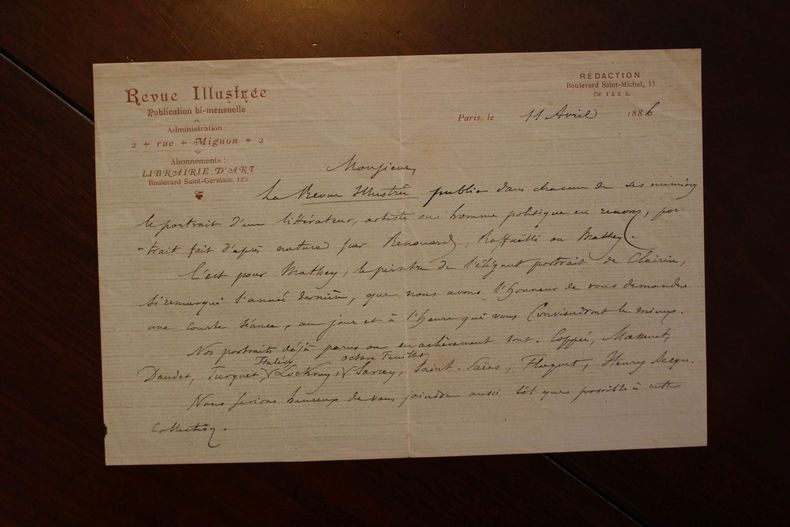 Revue Illustrée
Publication bi-mensuelle
Administration :
2 + rue + Mignon + 2
Abonnements :
LIBRAIRIE D'ART
Boulevard Saint-Germain, 125
RÉDACTION
Boulevard Saint-Michel, 55
De 1 à 2 h.
Paris, le 11 Avril 1886
Monsieur,
La Revue Illustrée publie dans chacun de ses numéros
le portrait d'un littérateur, artiste ou homme politique en renom, por-
-trait fait d'après nature par Renouard, Raffaëlli ou Mathey.
C'est pour Mathey, le peintre de l'élégant portrait de Clairin,
si remarqué l'année dernière, que nous avons l'honneur de vous demander
une courte séance, au jour et à l'heure qui vous conviendront le mieux.
Nos portraits déjà parus ou en achèvement sont : Coppée, Massenet,
Halévy octave Feuillet
Daudet, Turquet, Lockroy, Sarcey, Saint-Saëns, Floquet, Henry Becque.
Nous serions heureux de vous joindre aussi tôt que possible à cette
collection.